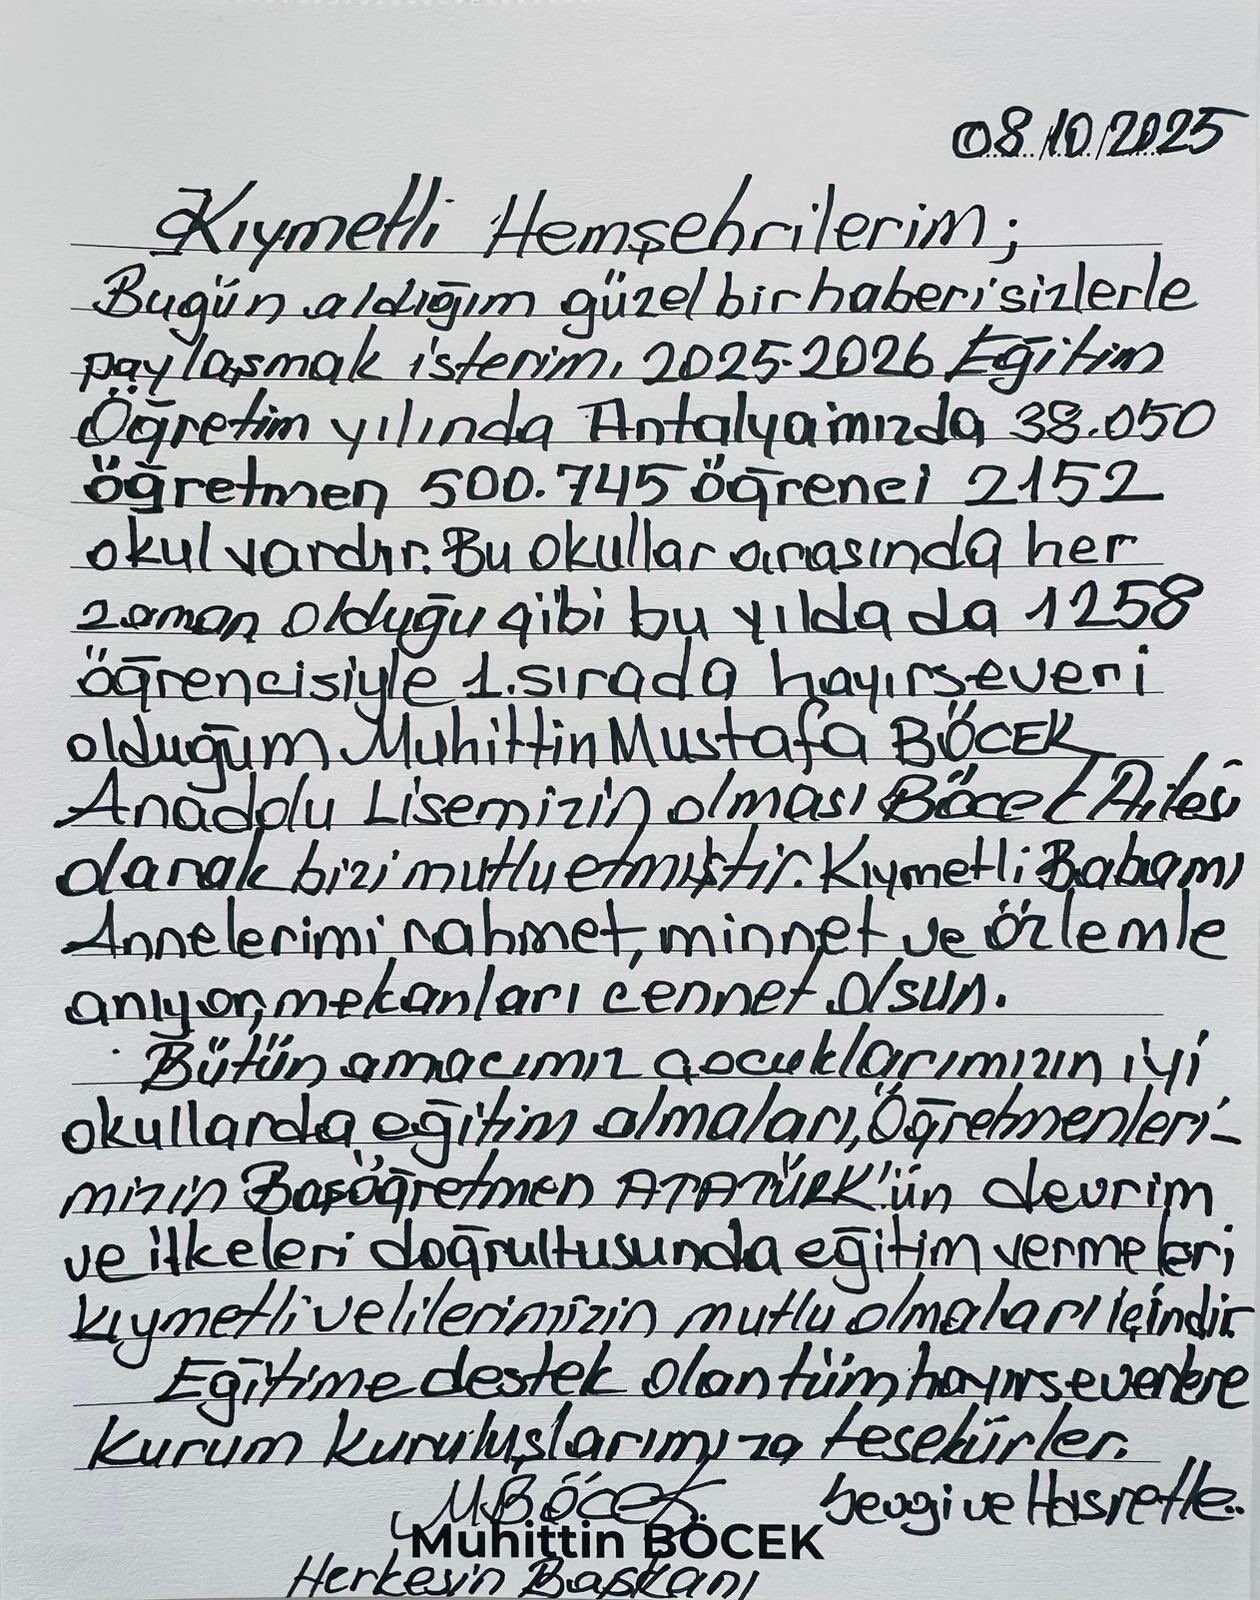 08.10.2025
Kıymetli Hemşehrilerim;
Bugün aldığım güzel bir haberi sizlerle
paylaşmak isterim, 2025-2026 Eğitim
Öğretim yılında Antalyamızda 38.050
öğretmen 500.745 öğrenci 2152
okul vardır. Bu okullar arasında her
zaman olduğu gibi bu yılda da 1258
öğrencisiyle 1.sırada hayırseveri
olduğum Muhittin Mustafa BÖCEK
Anadolu Lisemizin olması Böcek Ailesi
olarak bizi mutlu etmiştir. Kıymetli Babamı
Annelerimi rahmet, minnet ve özlemle
anıyor, mekanları cennet olsun.
Bütün amacımız çocuklarımızın iyi
okullarda eğitim almaları, Öğretmenleri-
mizin Başöğretmen ATATÜRK'ün devrim
ve ilkeleri doğrultusunda eğitim vermeleri
kıymetli velilerimizin mutlu olmaları içindir.
Eğitime destek olan tüm hayırseverlere
kurum kuruluşlarımıza teşekürler.
M.BÖCEK Sevgi ve Hasretle..
Muhittin BÖCEK
Herkesin Başkanı